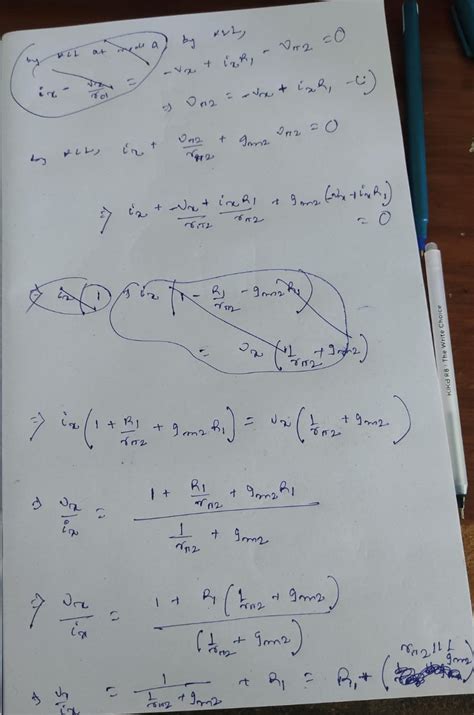 by KCL at node A by KVL,
i_x - v_x/r_o1 = -v_x + i_x R_1 - v_π2 = 0
⇒ v_π2 = -v_x + i_x R_1 -(i)
by KCL, i_x + v_π2/r_π2 + g_m2 v_π2 = 0
⇒ i_x + -v_x/r_π2 + i_x R_1/r_π2 + g_m2(-v_x + i_x R_1) = 0
⇒ i_x (1
⇒ i_x (1 - R_1/r_π2 - g_m2 R_1)
= v_x (1/r_π2 + g_m2)
⇒ i_x (1 + R_1/r_π2 + g_m2 R_1) = v_x (1/r_π2 + g_m2)
⇒ v_x/i_x = (1 + R_1/r_π2 + g_m2 R_1) / (1/r_π2 + g_m2)
⇒ v_x/i_x = (1 + R_1 (1/r_π2 + g_m2)) / (1/r_π2 + g_m2)
⇒ v_x/i_x = 1/(1/r_π2 + g_m2) + R_1 = R_1 + (r_π2 || 1/g_m2
The Write Choice